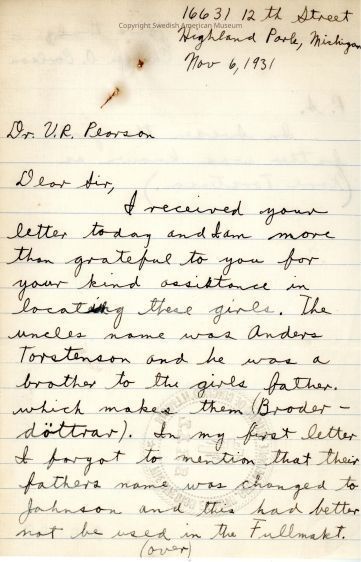 Copyright Swedish American Museum
16631 12th Street
Highland Park, Michigan
Nov 6, 1931
Dr. V.R. Pearson
Dear Sir,
I received your
letter today and I am more
than grateful to you for
your kind assistance in
locating these girls. The
uncles name was Anders
Torstenson and he was a
brother to the girls father.
which makes them (Broder-
döttrar). In my first letter
I forgot to mention that their
fathers name was changed to
Johnson and this had better
not be used in the Fullmakt.
(over)